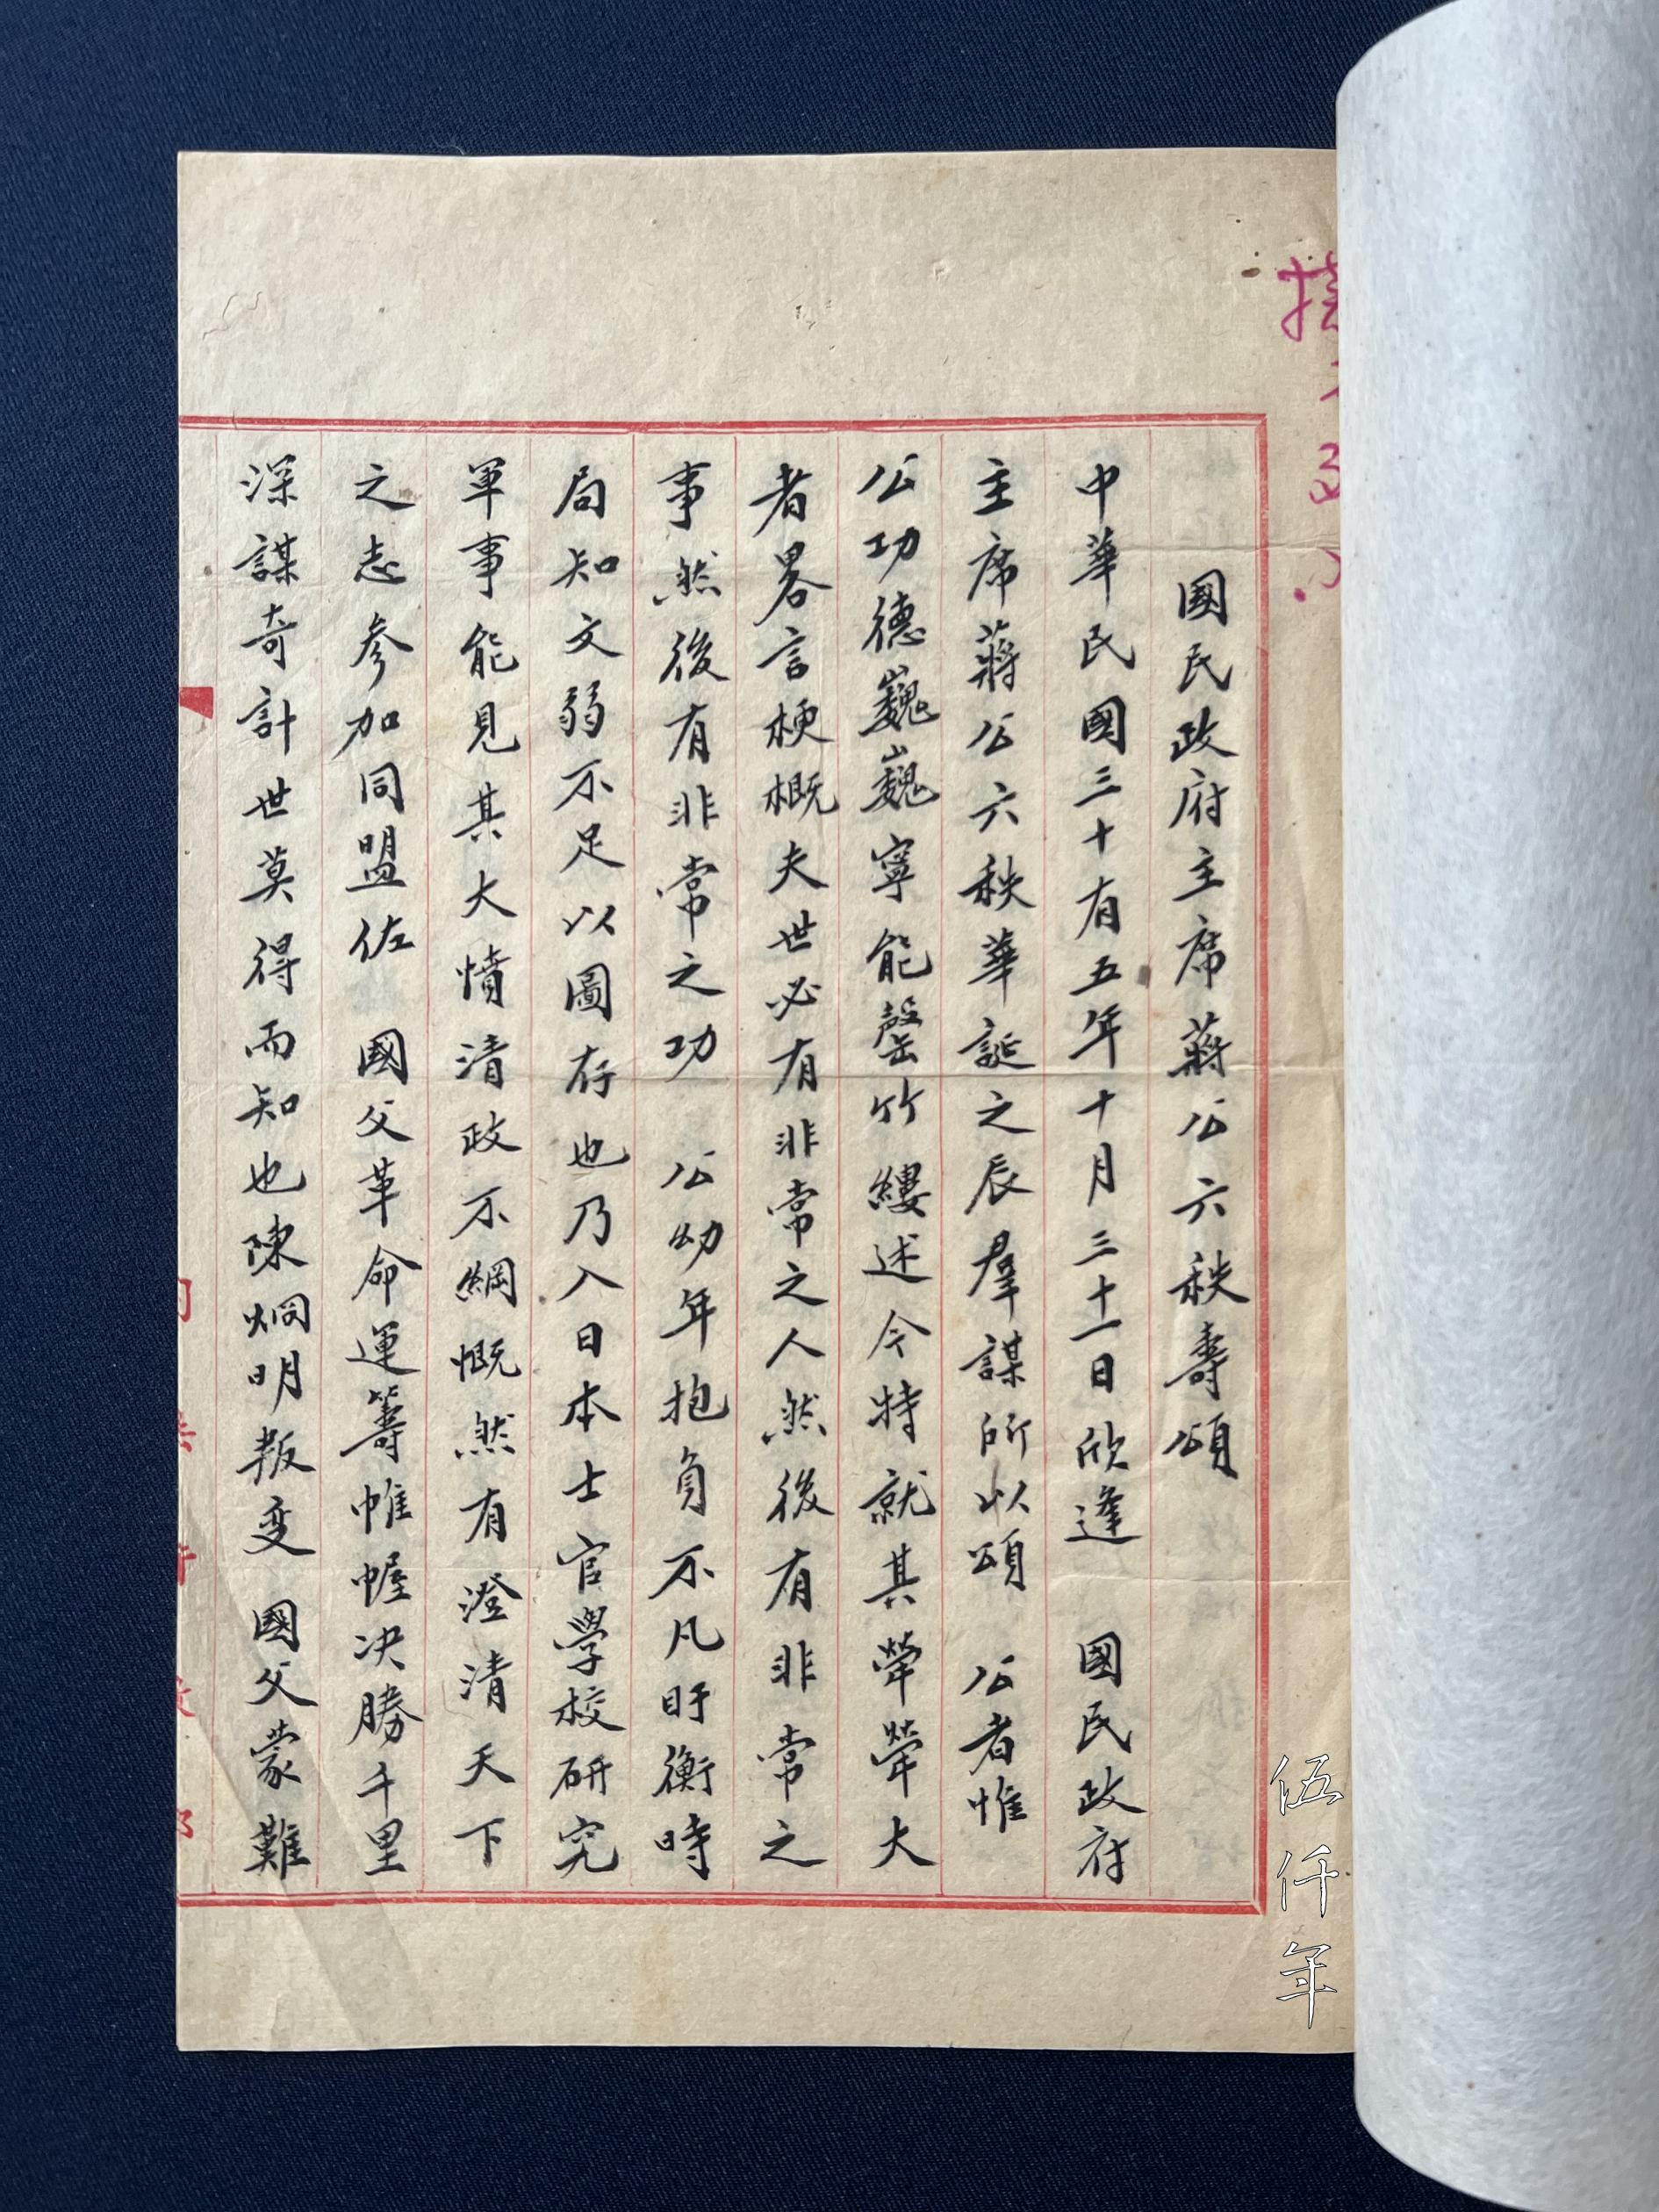 國民政府主席蔣公六秩壽頌
中華民國三十有五年十月三十一日欣逢　國民政府
主席蔣公六秩華誕之辰羣謀所以頌　公者惟
公功德巍巍寧能罄竹縷述今特就其犖犖大
者畧言梗概夫世必有非常之人然後有非常之
事然後有非常之功　公幼年抱負不凡盱衡時
局知文弱不足以圖存也乃入日本士官學校研究
軍事能見其大憤清政不綱慨然有澄清天下
之志參加同盟佐　國父革命運籌帷幄決勝千里
深謀奇計世莫得而知也陳烱明叛变　國父蒙難
伍仟年